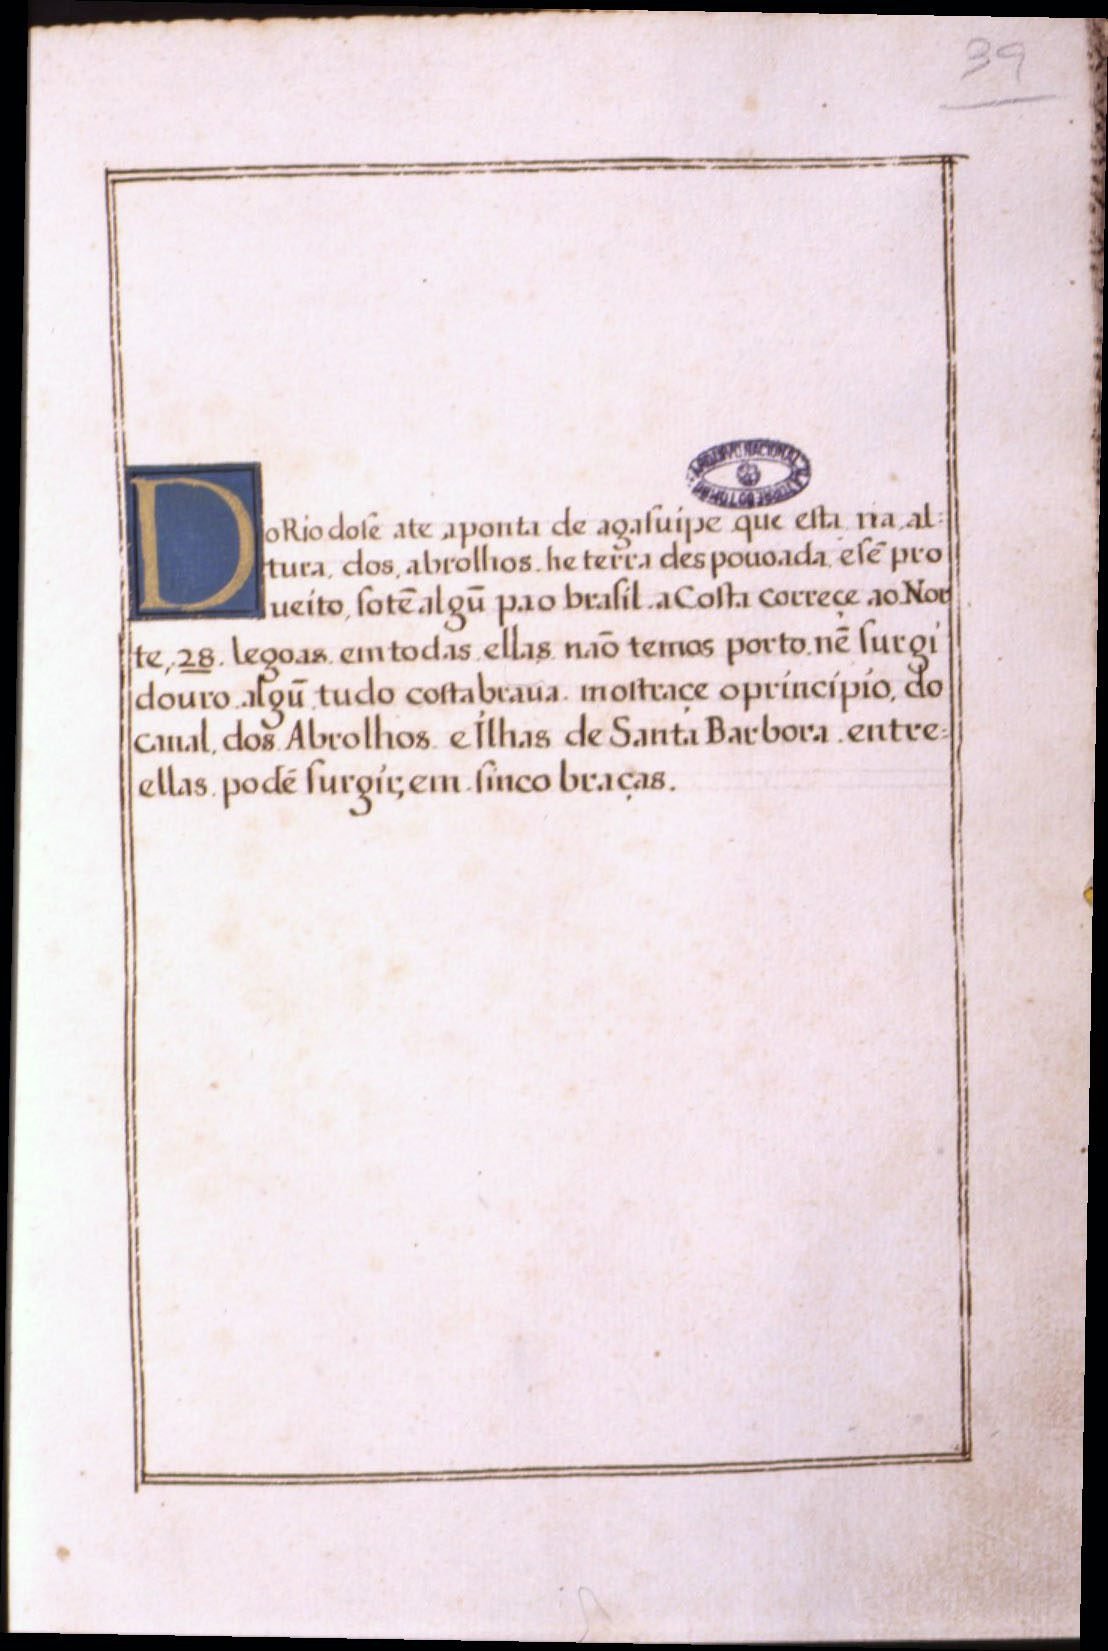 39
ARCHIVO NACIONAL DA TORRE DO TOMBO
DoRio dose ate aponta de agasuipe que esta na, al=
tura, dos, abrolhos. he terra des pouoada, esẽ pro
ueito, sotẽ algũ pao brasil. a Costa correçe ao Nor
te, 28. legoas. em todas ellas não temos porto. nẽ surgi
douro. algũ tudo costa braua. mostraçe o principio, do
canal, dos Abrolhos e Ilhas de Santa Barbora. entre=
ellas. podẽ surgir, em sinco braças.